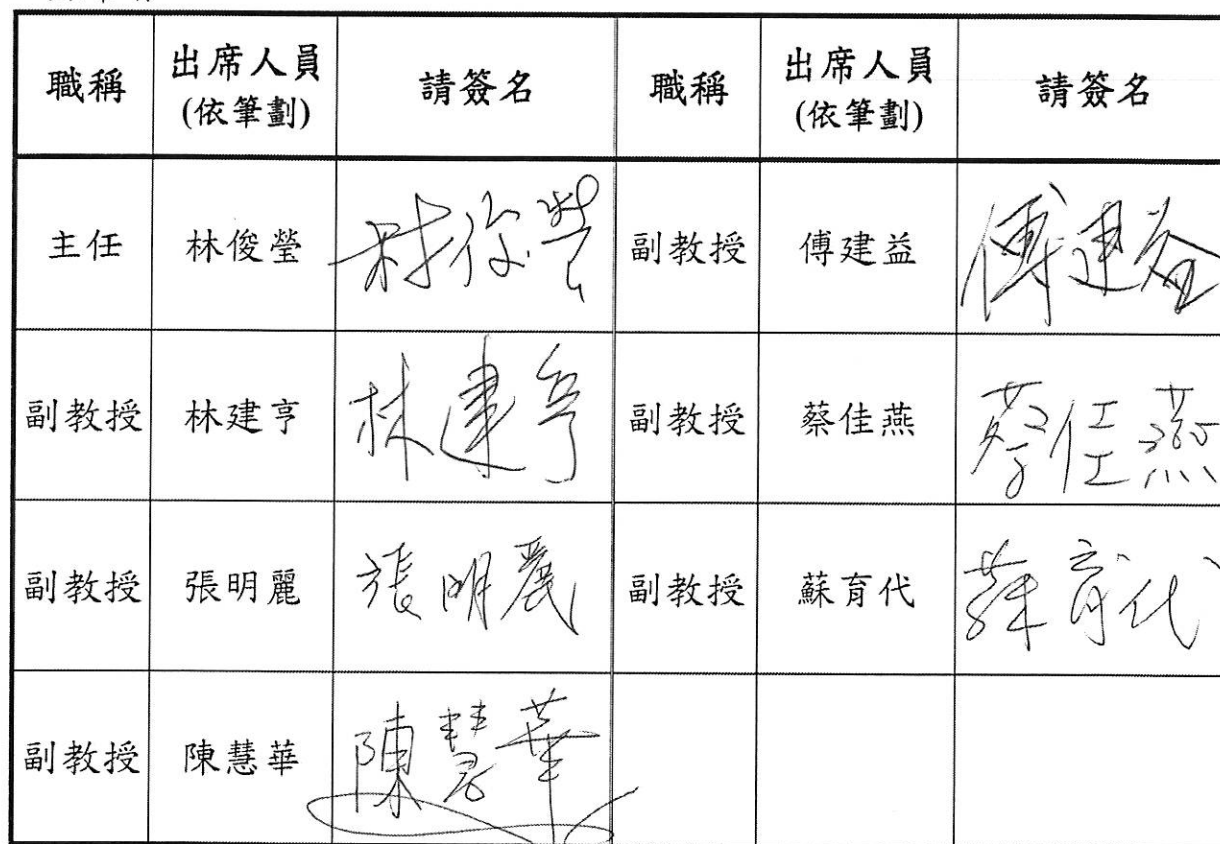 職稱 出席人員 (依筆劃) 請簽名 職稱 出席人員 (依筆劃) 請簽名
主任 林俊瑩 林俊瑩 副教授 傅建益 傅建益
副教授 林建亨 林建亨 副教授 蔡佳燕 蔡佳燕
副教授 張明麗 張明麗 副教授 蘇育代 蘇育代
副教授 陳慧華 陳慧華